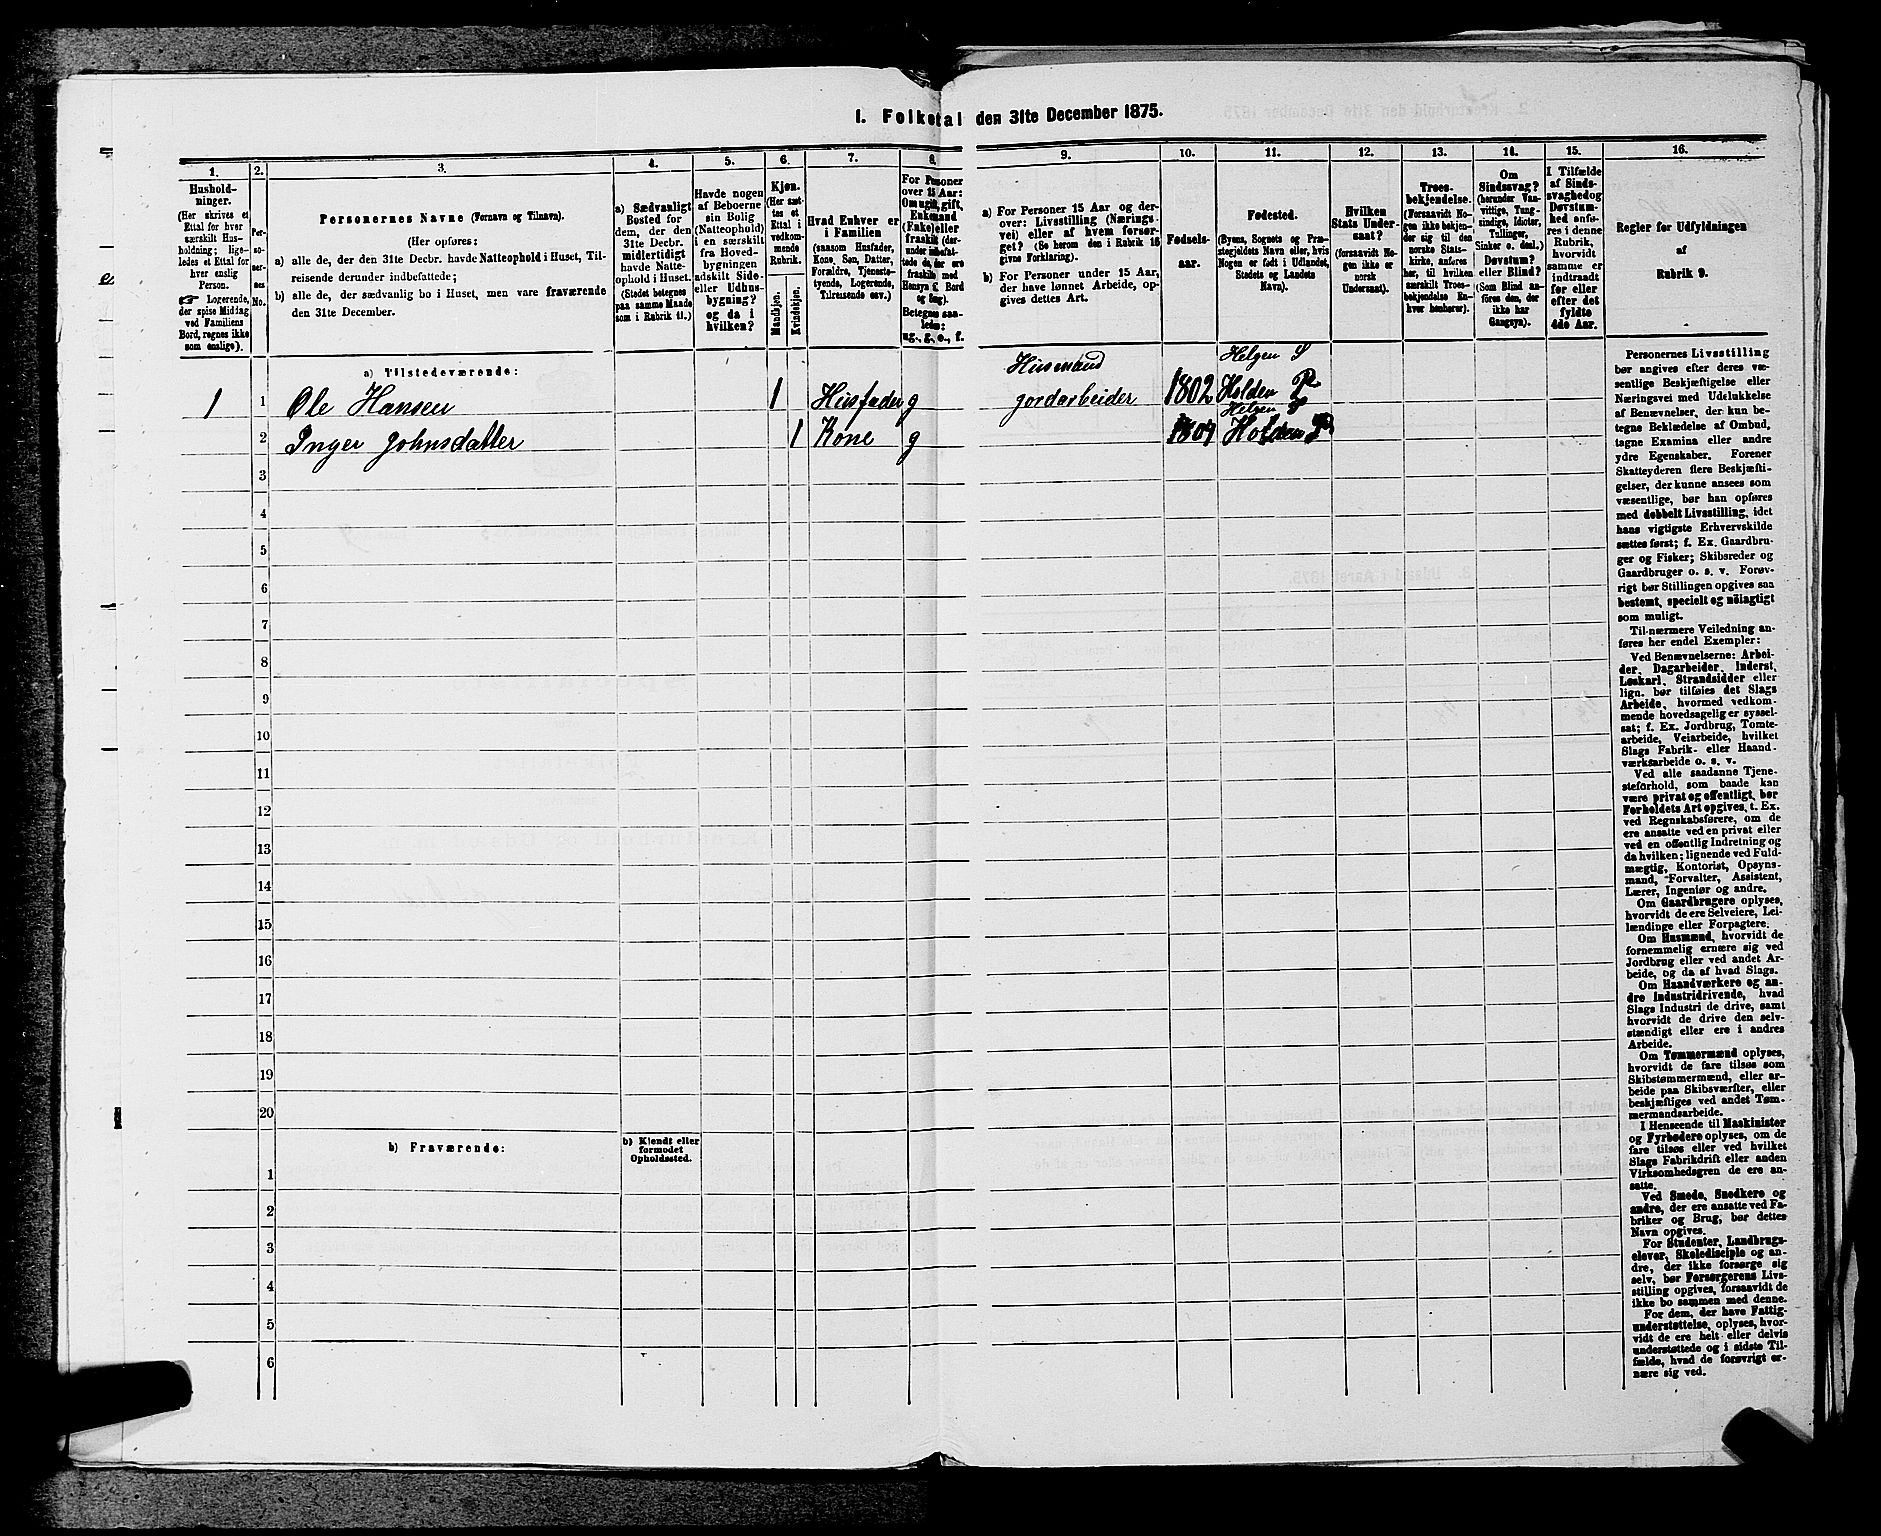 1. Folketal den 31te December 1875.
1. 2. 3. 4. 5. 6. 7. 8. 9. 10. 11. 12. 13. 14. 15. 16.
Hushold-
ninger.
(Her skrives et
Ettal for hver
særskilt Hus-
holdning; lige-
ledes et Ettal for
hver enslig
Person.
☞ Logerende,
der spise Middag
ved Familiens
Bord, regnes ikke
som enslige).
Per-
so-
ner-
nes
No.
Personernes Navne (Fornavn og Tilnavn).
(Her opføres:
a) alle de, der den 31te Decbr. havde Natteophold i Huset, Til-
reisende derunder indbefattede;
b) alle de, der sædvanlig bo i Huset, men vare fraværende
den 31te December.
a) Sædvanligt
Bosted for
dem, der den
31te Decbr.
midlertidigt
havde Natte-
ophold i Huset.
(Stedet betegnes
paa samme Maade
som i Rubrik 11.)
Havde nogen
af Beboerne
sin Bolig
(Natteophold)
i en særskilt
fra Hoved-
bygningen
adskilt Side-
eller Udhus-
bygning?
og da i
hvilken?
Kjøn.
(Her sæt-
tes et
Ettal i
vedkom-
mende
Rubrik.
Mandkjøn.
Kvindekjøn.
Hvad Enhver er
i Familien
(saasom Husfader,
Kone, Søn, Datter,
Forældre, Tjeneste-
tyende, Logerende,
Tilreisende osv.)
For Personer
over 15 Aar:
Om ugift, gift,
Enkemand
(Enke) eller
fraskilt (der-
under indbefat-
tede de, der ere
fraskilte med
Hensyn t. Bord
og Seng).
Betegnes saa-
ledes:
ug., g., e., f.
a) For Personer 15 Aar og der-
over: Livsstilling (Nærings-
vei) eller af hvem forsør-
get? (Se herom den i Rubrik 16
givne Forklaring).
b) For Personer under 15 Aar,
der have lønnet Arbeide, op-
gives dettes Art.
Fødsels-
aar.
Fødested.
(Byens, Sognets og Præ-
stegjeldets Navn eller, hvis
Nogen er født i Udlandet,
Stedets og Landets
Navn).
Hvilken
Stats Under-
saat?
(forsaavidt No-
gen ikke er
norsk
Undersaat).
Troes-
bekjendelse.
(Forsaavidt No-
gen ikke bekjen-
der sig til den
norske Stats-
kirke, anføres
her, til hvilken
særskilt Troes-
bekjendelse En-
hver henhører).
Om
Sindssvag?
(herunder Van-
vittige, Tung-
sindige, Idioter,
Tullinger,
Sinker o. desl.)
Døvstum?
eller Blind?
(Som Blind an-
føres den, der
ikke har
Gangsyn).
I Tilfælde
af Sinds-
svaghed og
Døvstum-
hed anfø-
res i denne
Rubrik,
hvorvidt
samme er
indtraadt
før eller
efter det
fyldte
4de Aar.
Regler for Udfyldningen
af
Rubrik 9.
a) Tilstedeværende:
Husmand Helgen S
1 1 Ole Hansen 1 Husfader g jordarbeider 1802 Holden P
Helgen S
2 Inger Johnsdatter 1 Kone g Holden P
3
4
5
6
7
8
9
10
11
12
13
14
15
16
17
18
19
20
b) Fraværende:
b) Kjendt eller
formodet
Opholdssted.
1
2
3
4
5
6
Personernes Livsstilling
bør angives efter deres væ-
sentlige Beskjæftigelse eller
Næringsvei med Udelukkelse
af Benævnelser, der kun be-
tegne Beklædelse af Ombud,
tagne Examina eller andre
ydre Egenskaber. Forener
Skatteyderen flere Beskjæfti-
gelser, der kunne ansees som
væsentlige, bør han opføres
med dobbelt Livsstilling, idet
hans vigtigste Erhvervskilde
sættes først; f. Ex. Gaardbru-
ger og Fisker; Skibsreder og
Gaardbruger o. s. v. Forøv-
rigt bør Stillingen opgives saa
bestemt, specielt og nöiagtigt
som muligt.
Til nærmere Veiledning an-
føres her endel Exempler:
Ved Benævnelserne: Arbei-
der, Dagarbeider, Inderst,
Løskarl, Strandsidder eller
lign. bør tilføies det Slags
Arbeide, hvormed vedkom-
mende hovedsagelig er syssel-
sat; f. Ex. Jordbrug, Tomte-
arbeide, Veiarbeide, hvilket
Slags Fabrik- eller Haand-
værksarbeide o. s. v.
Ved alle saadanne Tjene-
steforhold, som baade kan
være privat og offentligt, bør
Forholdets Art opgives, t. Ex.
ved Regnskabsførere, om de
ere ansatte ved en privat eller
ved en offentlig Indretning og
da hvilken; lignende ved Fuld-
mægtig, Kontorist, Opsyns-
mand, Forvalter, Assistent,
Lærer, Ingeniør og andre.
Om Gaardbrugere oplyses,
hvorvidt de ere Selveiere, Lei-
lændinge eller Forpagtere.
Om Husmænd, hvorvidt de
fornemmelig ernære sig ved
Jordbrug eller ved andet Ar-
beide, og da af hvad Slags.
Om Haandværkere og an-
dre Industridrivende, hvad
Slags Industri de drive, samt
hvorvidt de drive den selv-
stændigt eller ere i andres
Arbeide.
Om Tømmermænd oplyses,
hvorvidt de fare tilsøs som
Skibstømmermænd, eller ar-
beide paa Skibsværfter, eller
beskjæftiges ved andet Tøm-
mermandsarbeide.
I Henseende til Maskinister
og Fyrbødere oplyses, om de
fare tilsøs eller ved hvilket
Slags Fabrikdrift eller anden
Virksomhedsgren de ere an-
satte.
Ved Smede, Snedkere og
andre, der ere ansatte ved Fa-
briker og Brug, bør dettes
Navn opgives.
For Studenter, Landbrugs-
elever, Skoledisciple og an-
dre, der ikke forsørge sig
selv, bør Forsørgerens Livs-
stilling opgives, forsaavidt de
ikke bo sammen med denne.
For dem, der have Fattig-
understøttelse, oplyses, hvor-
vidt de ere helt eller delvis
understøttede og i sidste Til-
fælde, hvad de forøvrigt er-
nære sig ved.